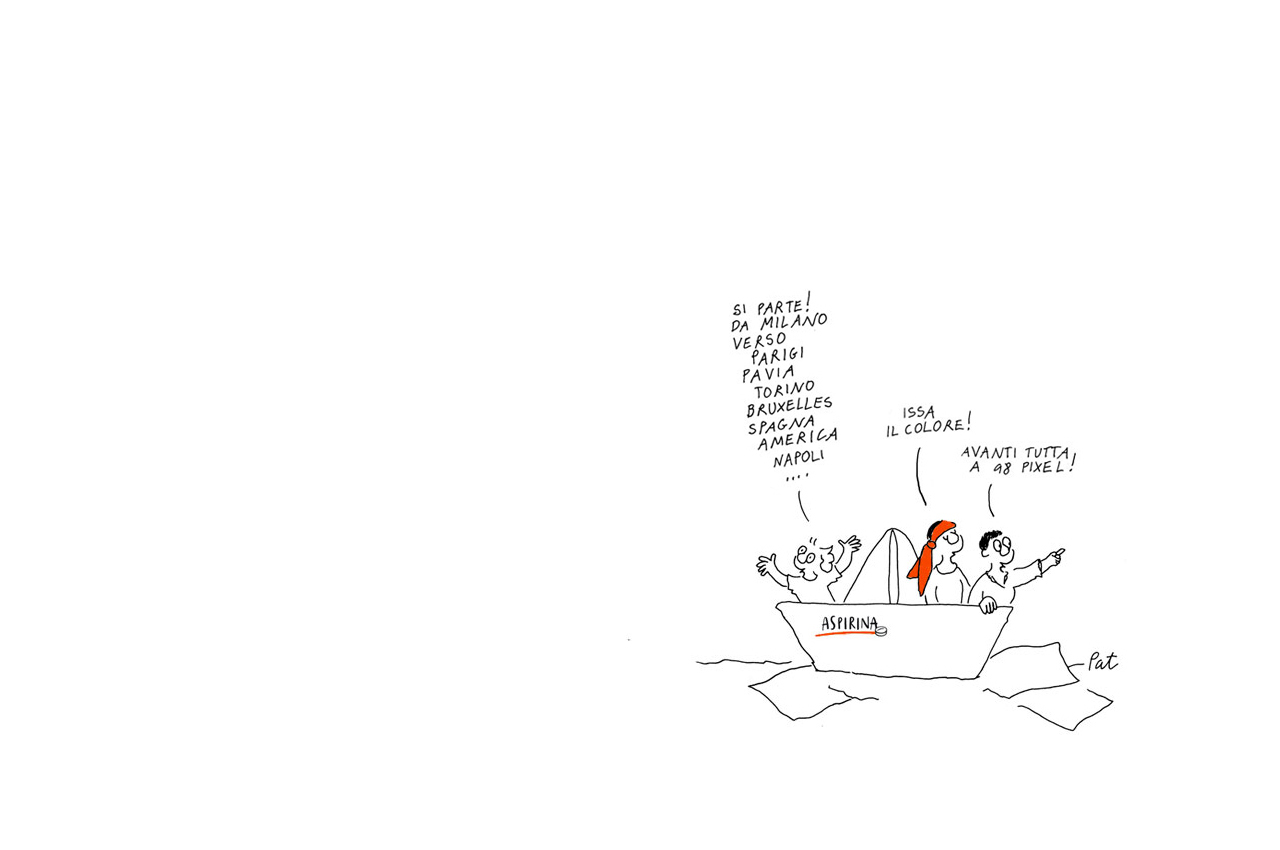 SI PARTE!
DA MILANO
VERSO
PARIGI
PAVIA
TORINO
BRUXELLES
SPAGNA
AMERICA
NAPOLI
....
ISSA
IL COLORE!
AVANTI TUTTA
A 98 PIXEL!
ASPIRINA
Pat